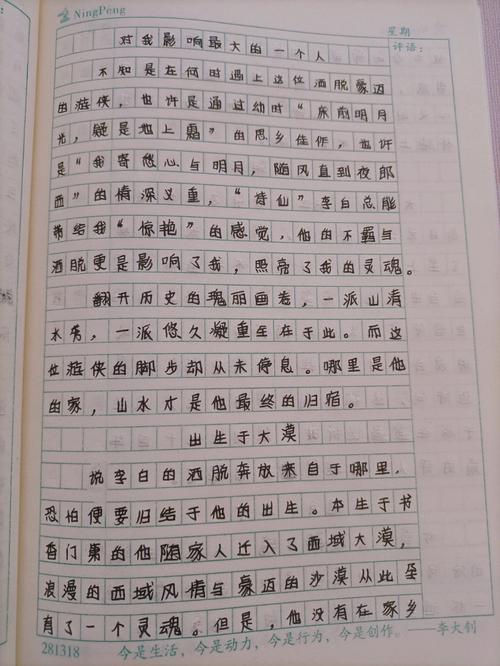 NingPeng
星期
评语:
对我影响最大的一个人
不知是在何时遇上这位洒脱豪迈
的游侠，也许是通过幼时“床前明月
光，疑是地上霜”的思乡佳作，也许
是“我寄愁心与明月，随风直到夜郎
西”的情深义重，“诗仙”李白总能
带给我“惊艳”的感觉，他的不羁与
洒脱更是影响了我，照亮了我的灵魂。
翻开历史的瑰丽画卷，一派山清
水秀，一派悠久凝重存在于此。而这
位游侠的脚步却从未停息。哪里是他
的家，山水才是他最终的归宿。
出生于大漠
说李白的洒脱奔放来自于哪里，
恐怕便要归结于他的出生。本生于书
香门第的他随家人迁入了西域大漠，
浪漫的西域风情与豪迈的沙漠从此孕
育了一个灵魂。但是，他没有在家乡
281318 今是生活，今是动力，今是行为，今是创作。——李大钊